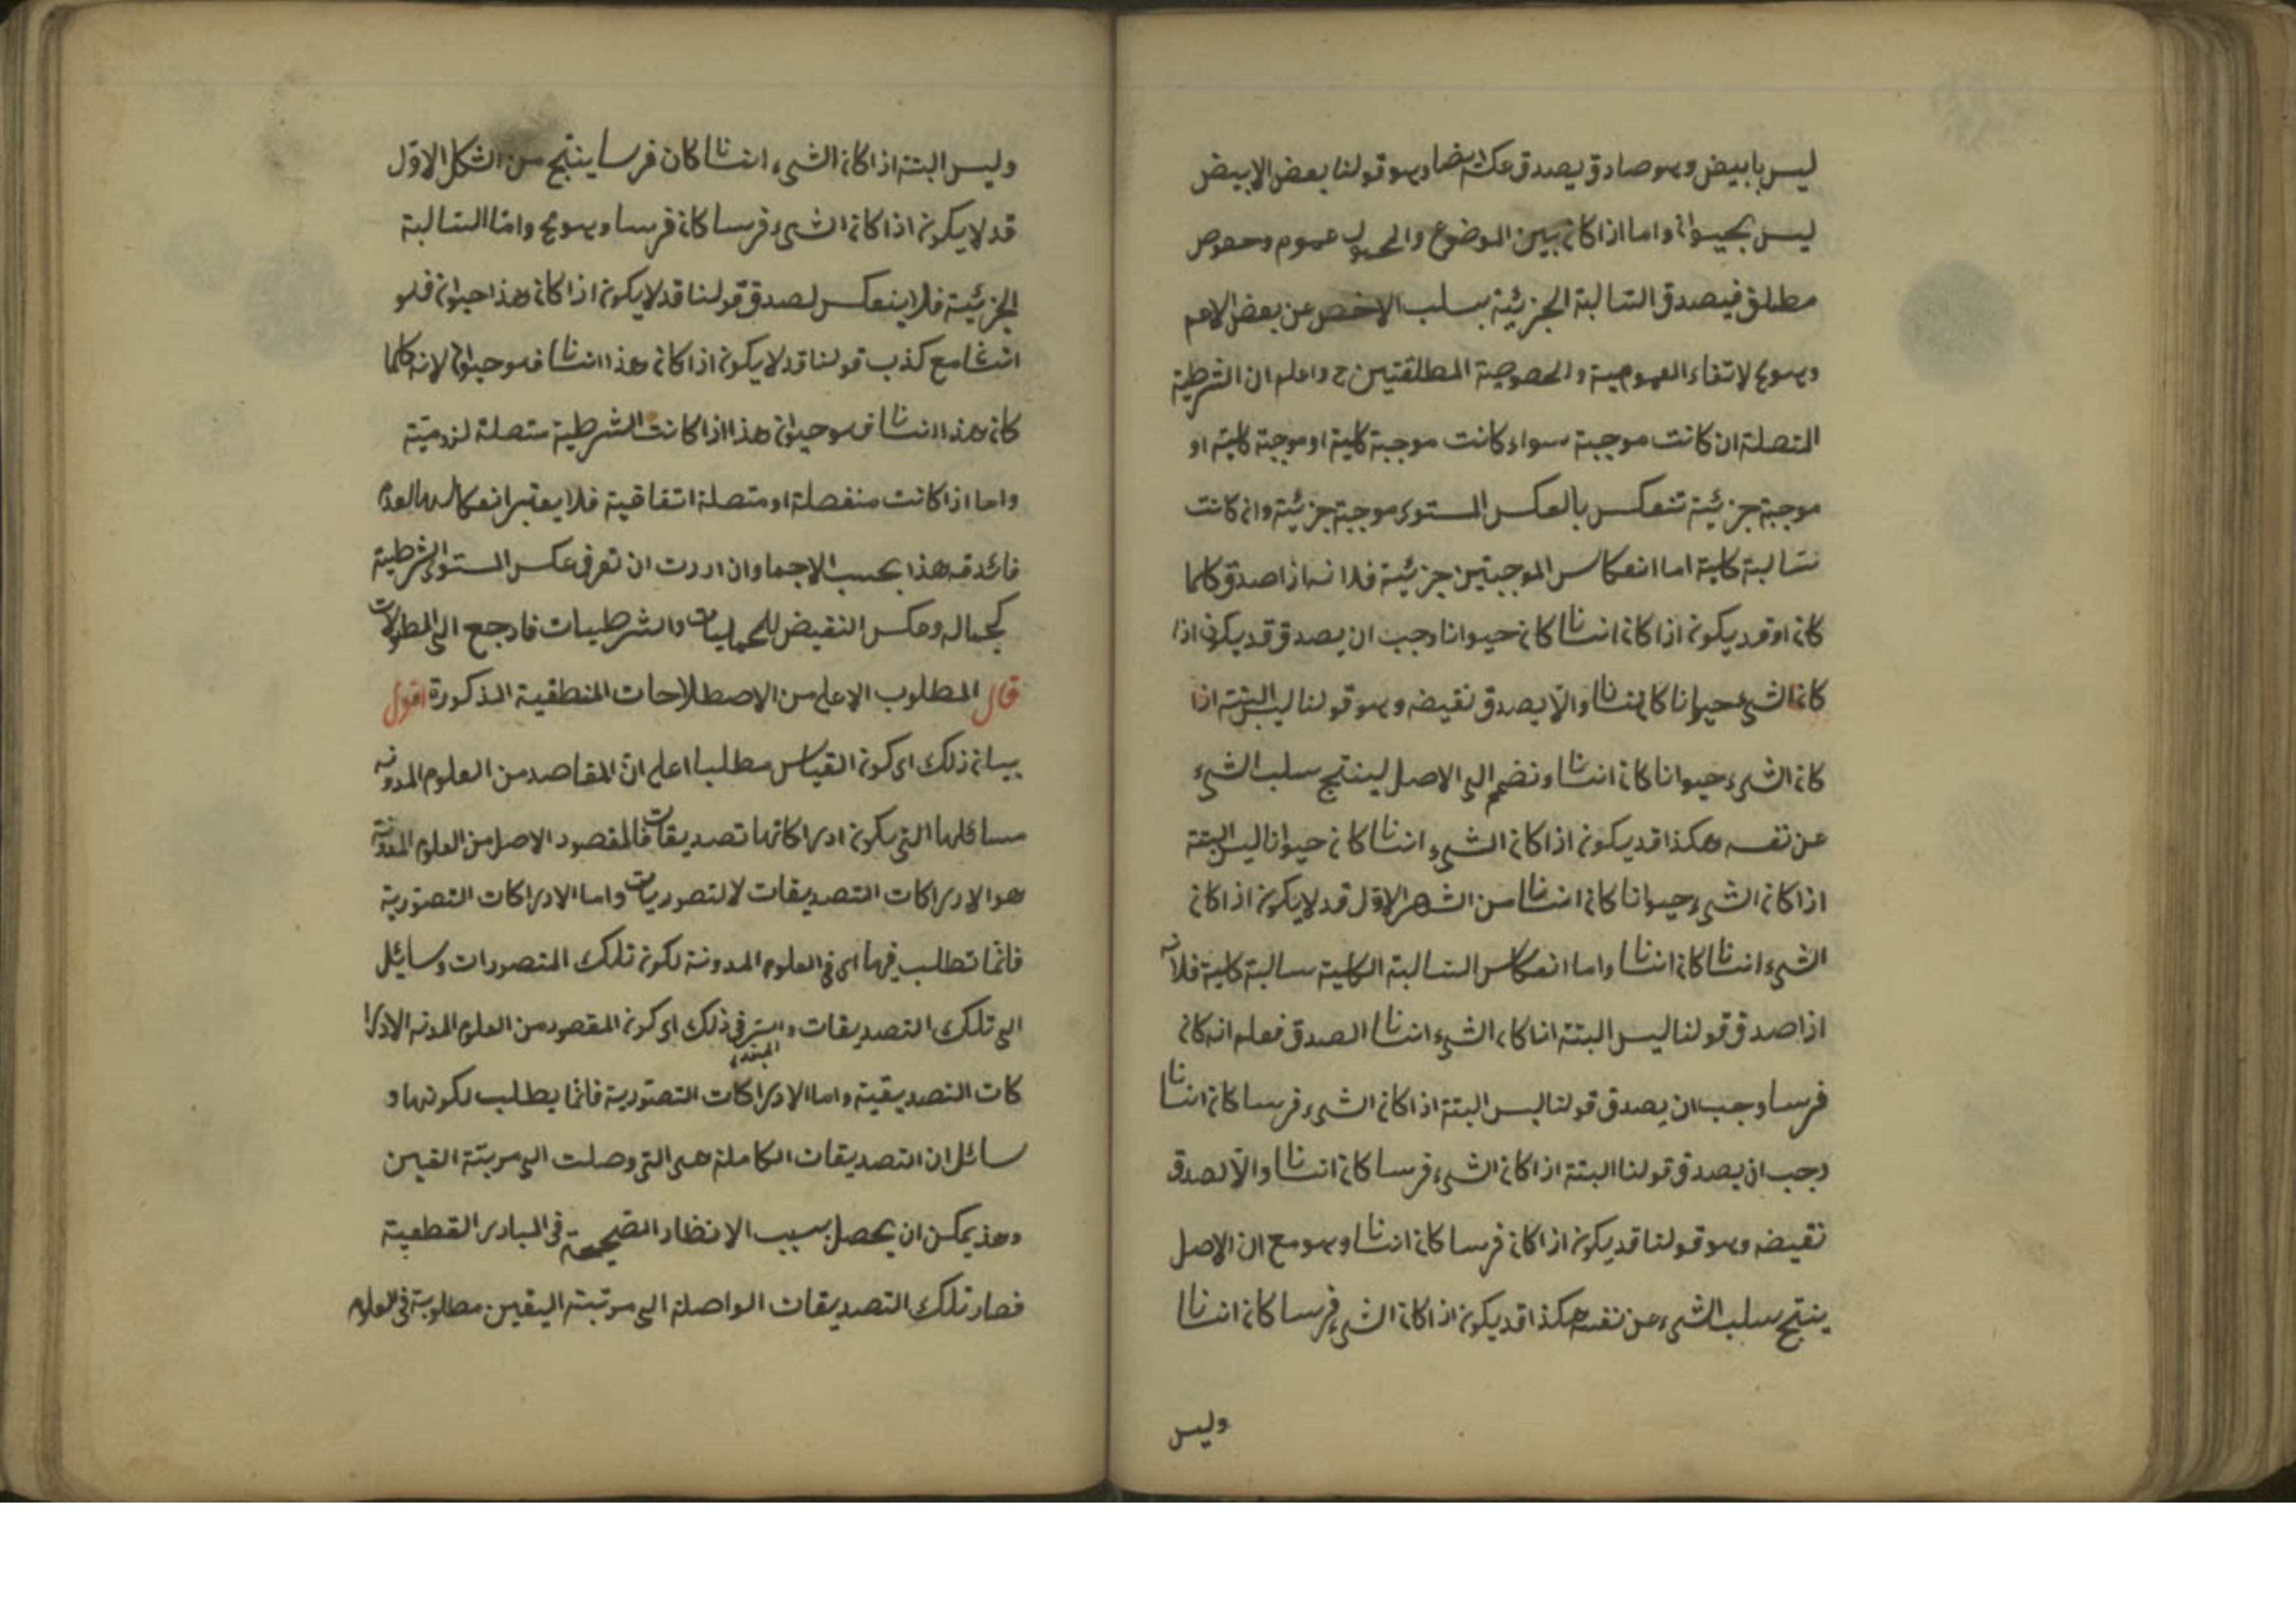 ليس بابيض وهو صادق يصدق عكسه ايضا وهو قولنا بعض الابيض
ليس بحيوان واما اذا كان بين الموضوع والمحمول عموم وخصوص
مطلق فيصدق السالبة الجزئية بسلب الاخص عن بعض الاعم
وهو مح لانتفاء العمومية والخصوصية المطلقتين ح واعلم ان الشرطية
المتصلة ان كانت موجبة سواء كانت موجبة كلية او موجبة كلية او
موجبة جزئية تنعكس بالعكس المستوى موجبة جزئية وان كانت
سالبة كلية اما انعكاس الموجبتين جزئية فلانه اذا صدق كلما
كان او قد يكون اذا كان انسانا كان حيوانا وجب ان يصدق قد يكون اذا
كان الشيء حيوانا كان انسانا والا يصدق نقيضه وهو قولنا ليس البتة اذا
كان الشيء حيوانا كان انسانا ونضم الى الاصل لينتج سلب الشيء
عن نفسه هكذا قد يكون اذا كان الشيء انسانا كان حيوانا ليس البتة
اذا كان الشيء حيوانا كان انسانا من الشهر الاول قد لا يكون اذا كان
الشيء انسانا كان انسانا واما انعكاس السالبة الكلية سالبة كلية فلانه
اذا صدق قولنا ليس البتة اذا كان الشيء انسانا الصدق فعلم انه كان
فرسا وجب ان يصدق قولنا ليس البتة اذا كان الشيء فرسا كان انسانا
وجب ان يصدق قولنا البتة اذا كان الشيء فرسا كان انسانا والا لصدق
نقيضه وهو قولنا قد يكون اذا كان فرسا كان انسانا وهو مع ان الاصل
ينتج سلب الشيء عن نفسه هكذا قد يكون اذا كان الشيء فرسا كان انسانا
وليس
وليس البتة اذا كان الشيء انسانا كان فرسا ينتج من الشكل الاول
قد لا يكون اذا كان الشيء فرسا كان فرسا وهو مح واما السالبة
الجزئية فلا ينعكس لصدق قولنا قد لا يكون اذا كان هذا حيوان فهو
انسانا مع كذب قولنا قد لا يكون اذا كان هذا انسانا فهو حيوان لانه كلما
كان هذا انسانا فهو حيوان هذا اذا كانت الشرطية متصلة لزومية
واما اذا كانت منفصلة او متصلة اتفاقية فلا يعتبر انعكاسها لعدم
فائدته هذا بحسب الاجما وان اردت ان تعرف عكس المستوى الشرطية
كجماله وعكس النقيض للحمليات والشرطيات فارجع الى المطولات
قال المطلوب الاعلى من الاصطلاحات المنطقية المذكورة اقول
بيان ذلك اى كون القياس مطلبا اعلى ان المقاصد من العلوم المدونه
مسائلها التى يكون ادراكاتها تصديقات فالمقصود الاصل من العلوم المدونة
هو الادراكات التصديقات لا لتصوريات واما الادراكات التصورية
فانما تطلب فيها اى في العلوم المدونة لكون تلك المتصورات وسائل
الى تلك التصديقات والسر في ذلك اى كون المقصود من العلوم المدونه الادرا
كات التصديقية واما الادراكات التصورية فانما يطلب لكونها و
سائل ان التصديقات الكاملة هى التى وصلت الى مرتبة القين
وهذ يمكن ان يحصل بسبب الانظار الصحيحة في المبادى القطعية
فصار تلك التصديقات الواصلة الى مرتبة اليقين مطلوبة في العلوم